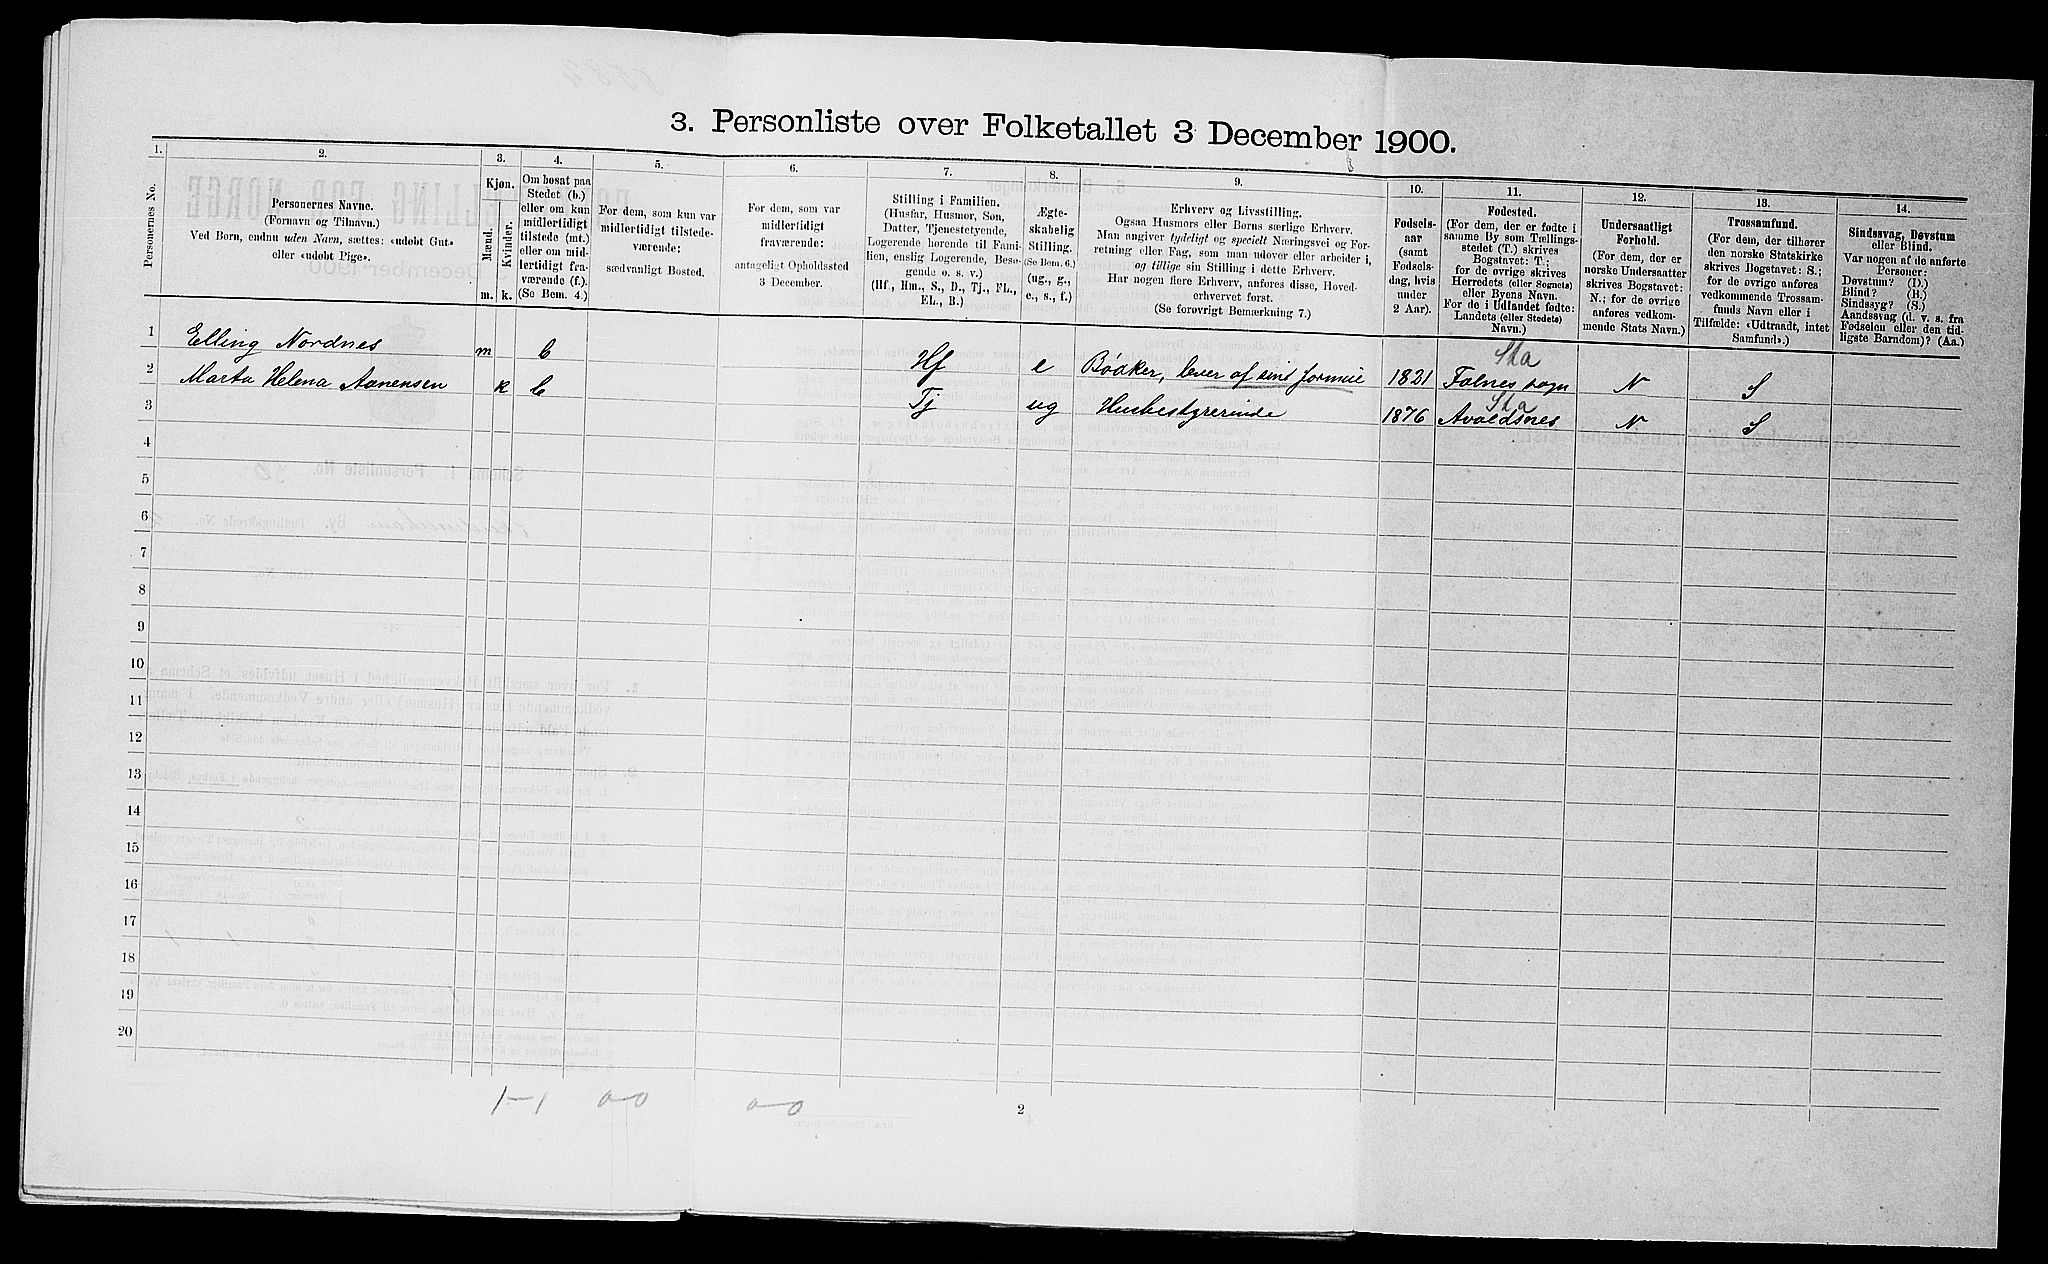 3. Personliste over Folketallet 3 December 1900.
1. 2. 3. 4. 5. 6. 7. 8. 9. 10. 11. 12. 13. 14.
Personernes No.
Personernes Navne.
(Fornavn og Tilnavn.)
Ved Børn, endnu uden Navn, sættes: «udøbt Gut»
eller «udøbt Pige».
Kjøn.
Mænd. Kvinder.
m. k.
Om bosat paa
Stedet (b.)
eller om kun
midlertidigt
tilstede (mt.)
eller om mid-
lertidigt fra-
værende (f.).
(Se Bem. 4.)
For dem, som kun var
midlertidigt tilstede-
værende:
sædvanligt Bosted.
For dem, som var
midlertidigt
fraværende:
antageligt Opholdssted
3 December.
Stilling i Familien.
(Husfar, Husmor, Søn,
Datter, Tjenestetyende,
Logerende hørende til Fami-
lien, enslig Logerende, Besø-
gende o. s. v.)
(Hf., Hm., S., D., Tj., FL.,
EL., B.)
Ægte-
skabelig
Stilling.
(Se Bem. 6.)
(ug., g.,
e., s., f.)
Erhverv og Livsstilling.
Ogsaa Husmors eller Børns særlige Erhverv.
Man angiver tydeligt og specielt Næringsvei og For-
retning eller Fag, som man udøver eller arbeider i,
og tillige sin Stilling i dette Erhverv.
Har nogen flere Erhverv, anføres disse, Hoved-
erhvervet først.
(Se forøvrigt Bemærkning 7.)
Fødsels-
aar
(samt
Fødsels-
dag, hvis
under
2 Aar).
Fødested.
(For dem, der er fødte i
samme By som Tællings-
stedet (T.) skrives
Bogstavet: T.;
for de øvrige skrives
Herredets (eller Sognets)
eller Byens Navn.
For de i Udlandet fødte:
Landets (eller Stedets)
Navn.)
Undersaatligt
Forhold.
(For dem, der er
norske Undersaatter
skrives Bogstavet:
N.; for de øvrige
anføres vedkom-
mende Stats Navn.)
Trossamfund.
(For dem, der tilhører
den norske Statskirke
skrives Bogstavet: S.;
for de øvrige anføres
vedkommende Trossam-
funds Navn eller i
Tilfælde: «Udtraadt, intet
Samfund».)
Sindssvag, Døvstum
eller Blind.
Var nogen af de anførte
Personer:
Døvstum? (D.)
Blind? (B.)
Sindssyg? (S.)
Aandssvag (d. v. s. fra
Fødselen eller den tid-
ligste Barndom)? (Aa.)
1 Elling Nordnes m b Hf e Bødker, lever af sind formue 1821 Falnes sogn Sta N S
2 Marta Helena Aanensen k b Tj ug Husbestyrerinde 1876 Avaldsnes Sta N S
3
4
5
6
7
8
9
10
11
12
13
14
15
16
17
18
19
20
1-1 0-0 0-0
2